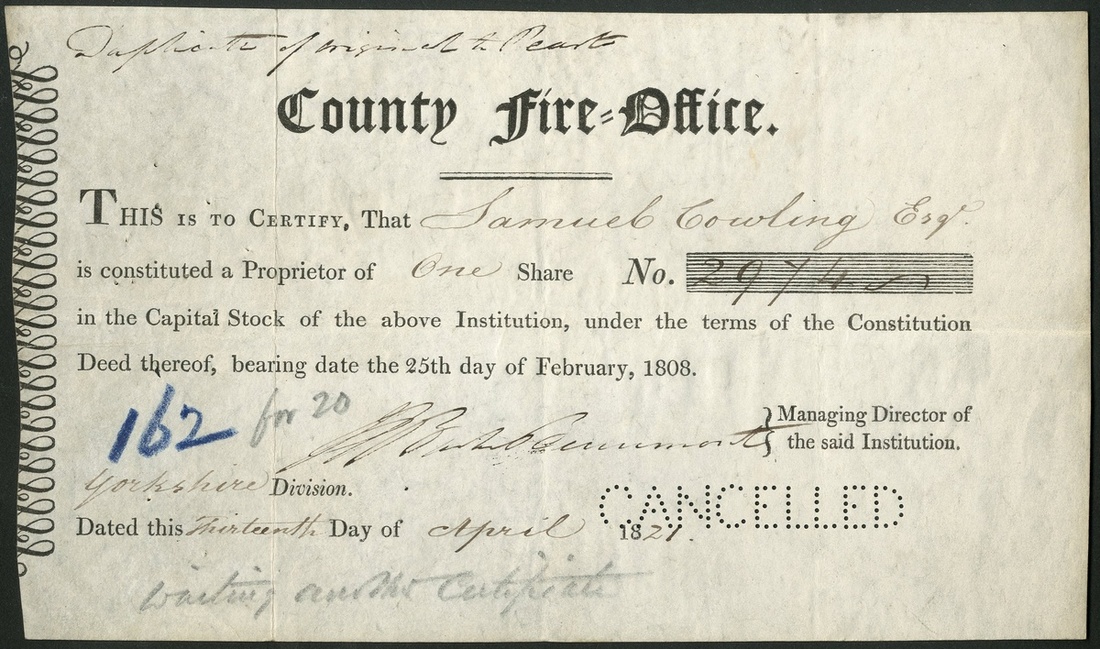 Duplicate of original to Pearts
County Fire=Office.
THIS IS TO CERTIFY, That Samuel Cowling Esqr.
is constituted a Proprietor of One Share No. 2974
in the Capital Stock of the above Institution, under the terms of the Constitution
Deed thereof, bearing date the 25th day of February, 1808.
162 for 20
Beaumont } Managing Director of
the said Institution.
Yorkshire Division.
CANCELLED
Dated this Thirteenth Day of April 1821.
waiting another Certificate